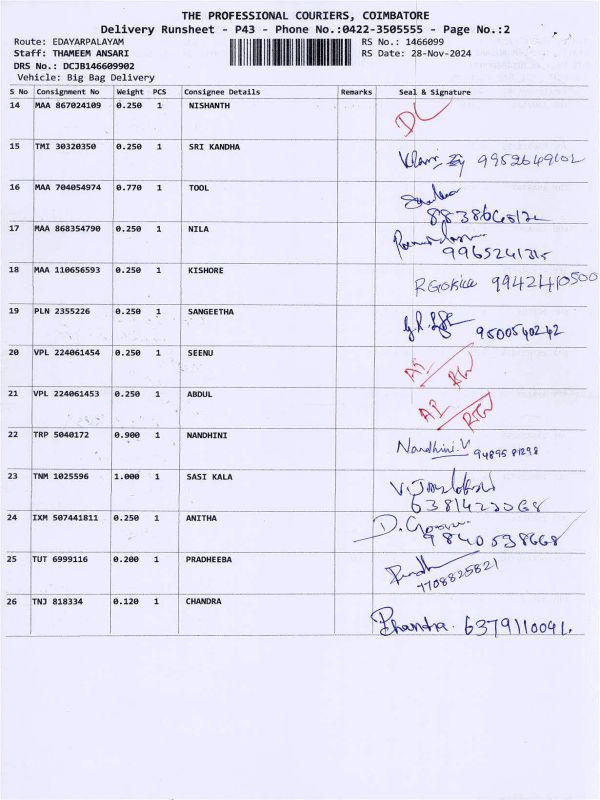 THE PROFESSIONAL COURIERS, COIMBATORE
Delivery Runsheet - P43 - Phone No.:0422-3505555 - Page No.:2
Route: EDAYARPALAYAM RS No.: 1466099
Staff: THAMEEM ANSARI RS Date: 28-Nov-2024
DRS No.: DCJB146609902
Vehicle: Big Bag Delivery
S No Consignment No Weight PCS Consignee Details Remarks Seal & Signature
14 MAA 867024109 0.250 1 NISHANTH DC
15 TMI 30320350 0.250 1 SRI KANDHA
16 MAA 704054974 0.770 1 TOOL
17 MAA 868354790 0.250 1 NILA
18 MAA 110656593 0.250 1 KISHORE 9942410500
19 PLN 2355226 0.250 1 SANGEETHA 9500540242
20 VPL 224061454 0.250 1 SEENU
21 VPL 224061453 0.250 1 ABDUL
22 TRP 5040172 0.900 1 NANDHINI Nandhini.V 9489581298
23 TNM 1025596 1.000 1 SASI KALA
24 IXM 507441811 0.250 1 ANITHA 9840538668
25 TUT 6999116 0.200 1 PRADHEEBA 7708825821
26 TNJ 818334 0.120 1 CHANDRA 6379110041.